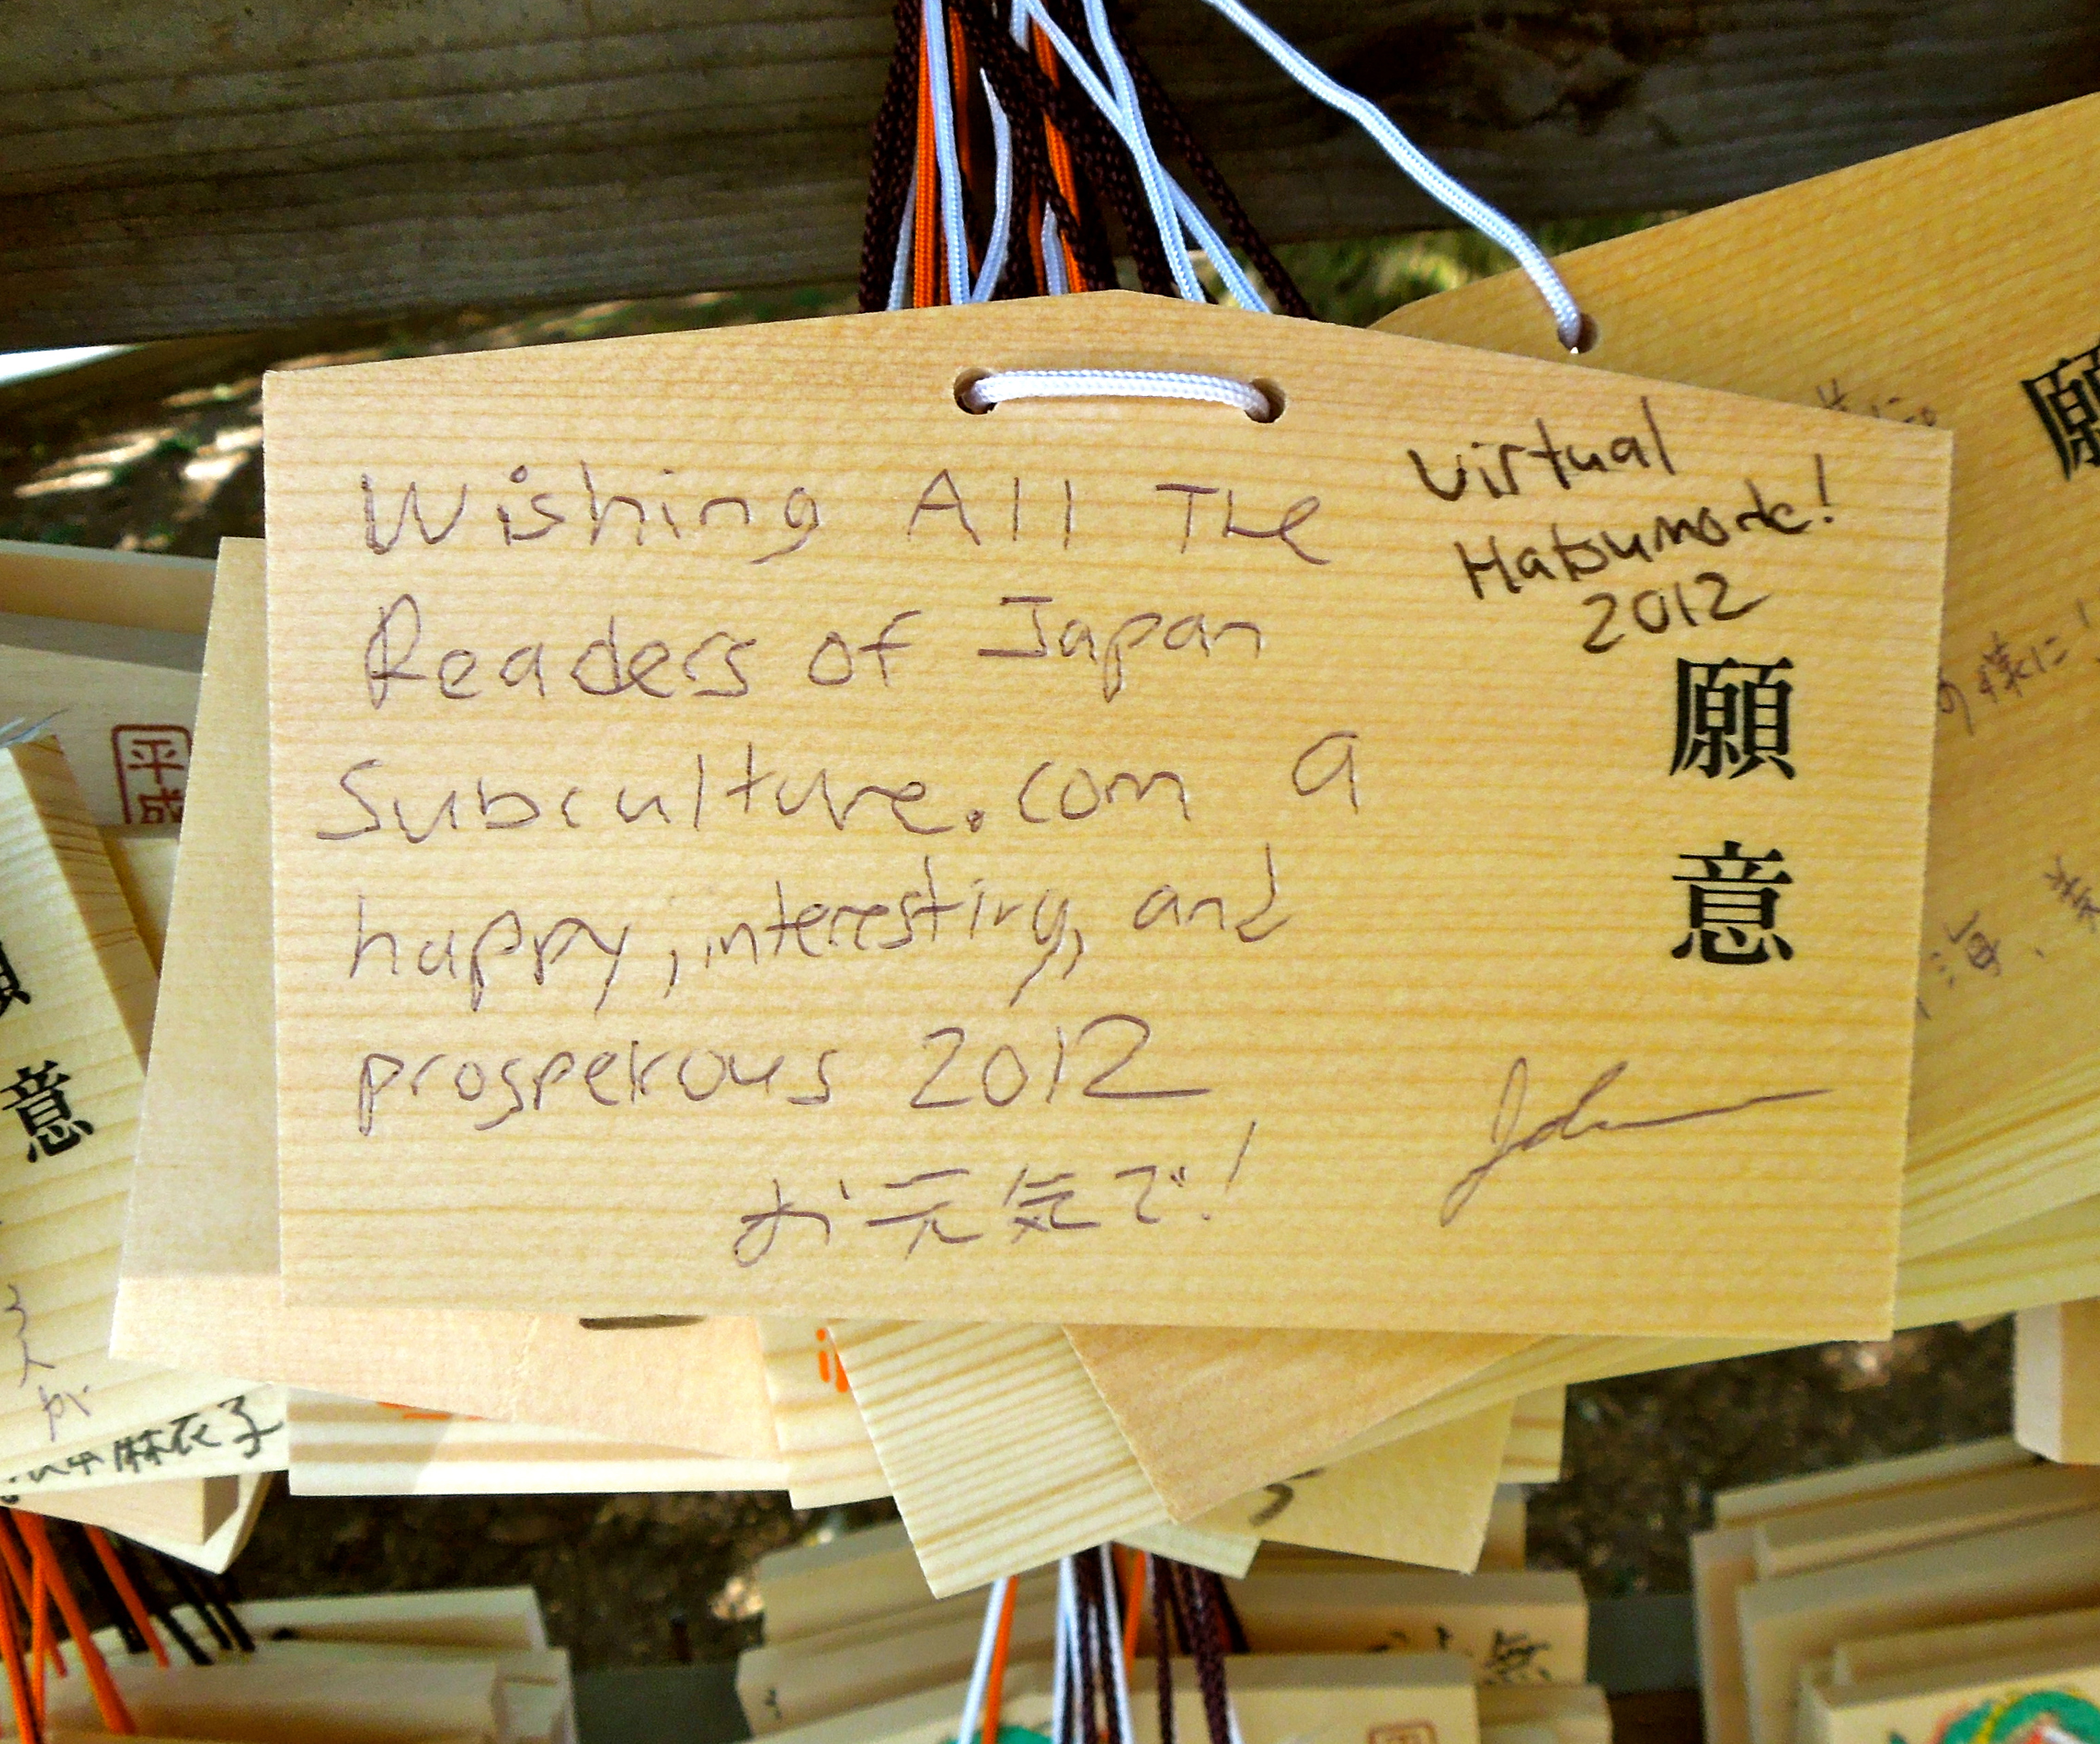 Wishing All The
Readers of Japan
Subculture.com a
happy, interesting, and
prosperous 2012
お元気で!
Virtual
Hatsumode!
2012
願意
願
意
麻衣子
様に!